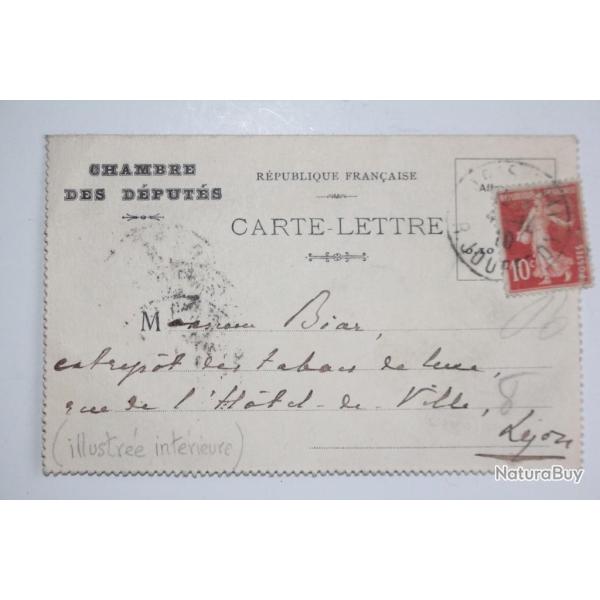 CHAMBRE
DES DÉPUTÉS
RÉPUBLIQUE FRANÇAISE
CARTE-LETTRE
10c
POSTES
Monsieur Biar,
entrepôt des tabacs de luxe,
rue de l'Hôtel-de-Ville,
8
Lyon
(illustrée intérieure)
NaturaBuy